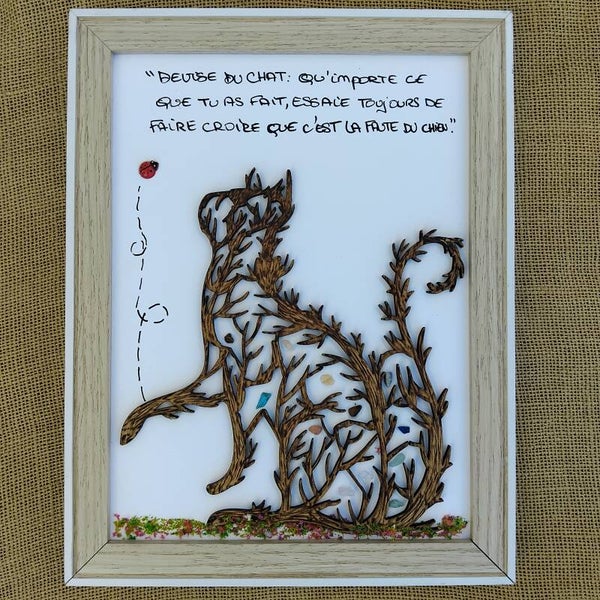 "DEVISE DU CHAT: QU'IMPORTE CE
QUE TU AS FAIT, ESSAIE TOUJOURS DE
FAIRE CROIRE QUE C'EST LA FAUTE DU CHIEN."